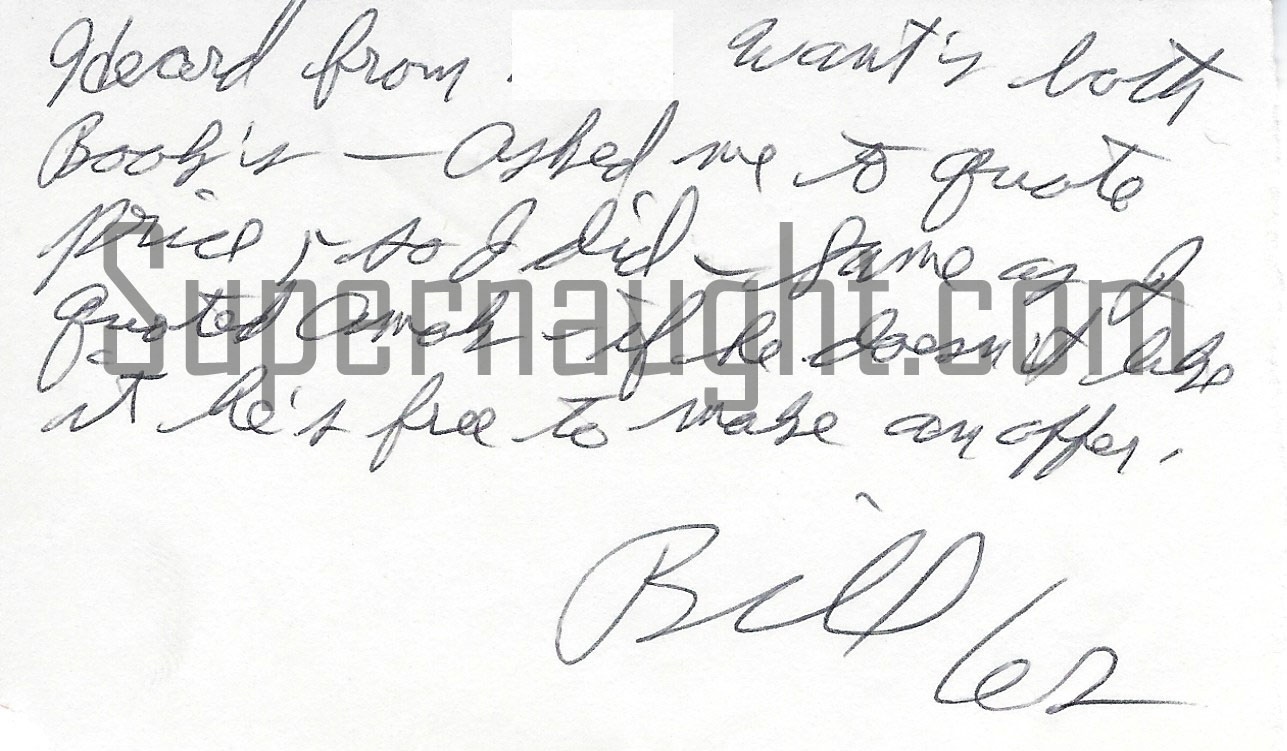 Heard from want's both
Book's — Asked me to quote
price, so I did — Same as I
quoted Amok - if he doesn't take
it he's free to make an offer.
Supernaught.com
Bill